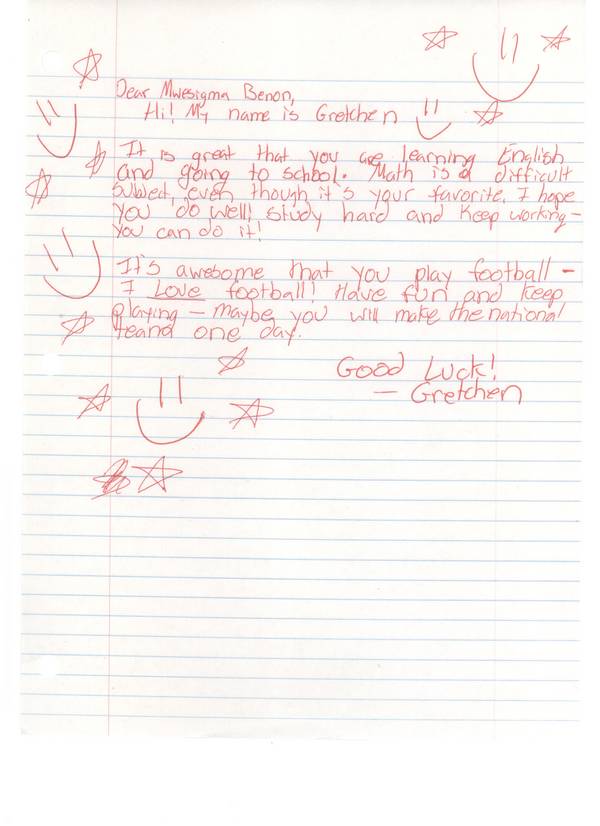 Dear Mwesigma Benon,
Hi! My name is Gretchen
It is great that you are learning English
and going to school. Math is a difficult
subject, even though it's your favorite. I hope
you do well! Study hard and keep working -
You can do it!
It's awesome that you play football -
I LOVE football! Have fun and keep
playing - maybe you will make the national
team one day.
Good Luck!
- Gretchen